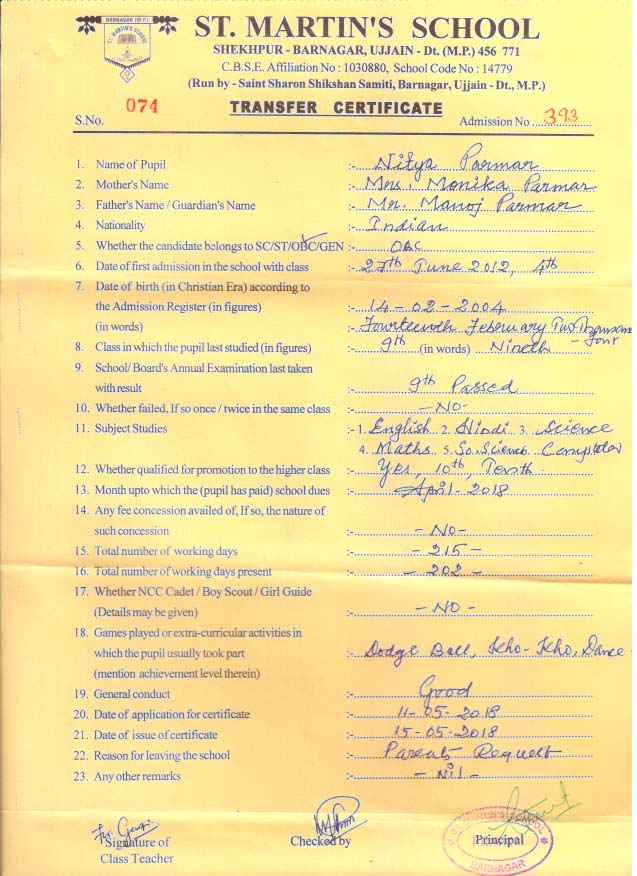 BARNAGAR (M.P.)
ST. MARTIN'S SCHOOL
ST. MARTIN'S SCHOOL
SHEKHPUR - BARNAGAR, UJJAIN - Dt. (M.P.) 456 771
C.B.S.E. Affiliation No : 1030880, School Code No : 14779
(Run by - Saint Sharon Shikshan Samiti, Barnagar, Ujjain - Dt., M.P.)
S.No. 074 TRANSFER CERTIFICATE Admission No 393
1. Name of Pupil :- Nitya Parmar
2. Mother's Name :- Mrs. Monika Parmar
3. Father's Name / Guardian's Name :- Mr. Manoj Parmar
4. Nationality :- Indian
5. Whether the candidate belongs to SC/ST/OBC/GEN :- OBC
6. Date of first admission in the school with class :- 27th June 2012, 4th
7. Date of birth (in Christian Era) according to
the Admission Register (in figures) :- 14-02-2004
(in words) :- Fourteenth February Two Thousand
- Four
8. Class in which the pupil last studied (in figures) :- 9th (in words) Nineth
9. School/ Board's Annual Examination last taken
with result :- 9th Passed
10. Whether failed, If so once / twice in the same class :- -NO-
11. Subject Studies :- 1. English 2. Hindi 3. Science
4. Maths 5. So. Science Computer
12. Whether qualified for promotion to the higher class :- Yes, 10th, Tenth
13. Month upto which the (pupil has paid) school dues :- April-2018
14. Any fee concession availed of, If so, the nature of
such concession :- - No-
15. Total number of working days :- - 215 -
16. Total number of working days present :- - 202 -
17. Whether NCC Cadet / Boy Scout / Girl Guide
(Details may be given) :- - NO -
18. Games played or extra-curricular activities in
which the pupil usually took part :- Dodge Ball, Kho-Kho, Dance-
(mention achievement level therein)
19. General conduct :- Good
20. Date of application for certificate :- 11-05-2018
21. Date of issue of certificate :- 15-05-2018
22. Reason for leaving the school :- Parents Request
23. Any other remarks :- - Nil -
Signature of
Class Teacher
Checked by
Principal
ST. MARTIN'S SCHOOL
BARNAGAR